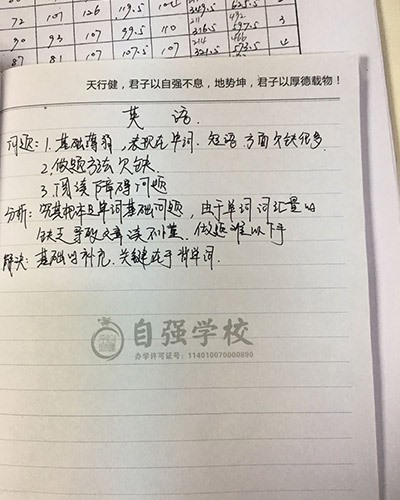 72 107 126 119.5 102 349.5 625.5 2
211 492
90 93 107 99.5 110 316.5 597.5 3
214 466
87 81 107 107.5 107 321.5 573.5 4
天行健，君子以自强不息，地势坤，君子以厚德载物！
英 语.
问题: 1. 基础薄弱, 表现在单词、短语 方面欠缺很多.
2. 做题方法欠缺.
3. 阅读障碍问题
分析: 究其根本是单词基础问题, 由于单词词汇量的
缺乏导致文章读不懂. 做题难以下手
解决: 基础的补充. 关键在于背单词.
自强学校
办学许可证号：114010070000890